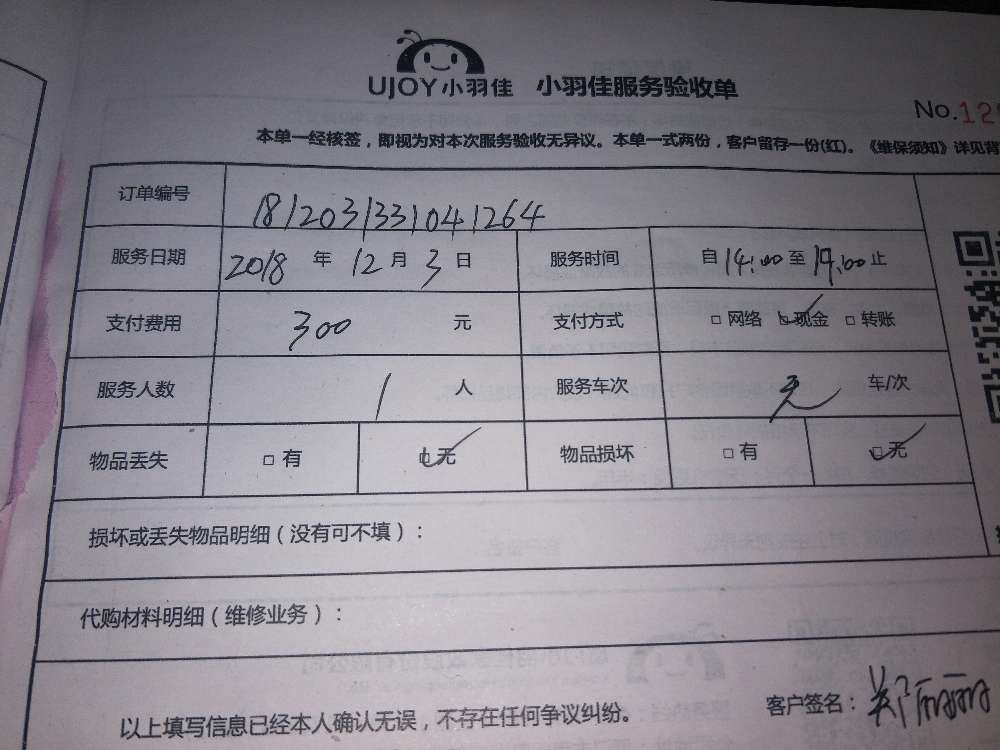 UJOY小羽佳 小羽佳服务验收单
No.12
本单一经核签，即视为对本次服务验收无异议。本单一式两份，客户留存一份(红)。《维保须知》详见背
订单编号 1812031331041264
服务日期 2018 年 12 月 3 日 服务时间 自 14:00 至 19:00 止
支付费用 300 元 支付方式 □ 网络 □ 现金 □ 转账
服务人数 1 人 服务车次 无 车/次
物品丢失 □ 有 □ 无 物品损坏 □ 有 □ 无
损坏或丢失物品明细（没有可不填）：
代购材料明细（维修业务）：
以上填写信息已经本人确认无误，不存在任何争议纠纷。 客户签名：